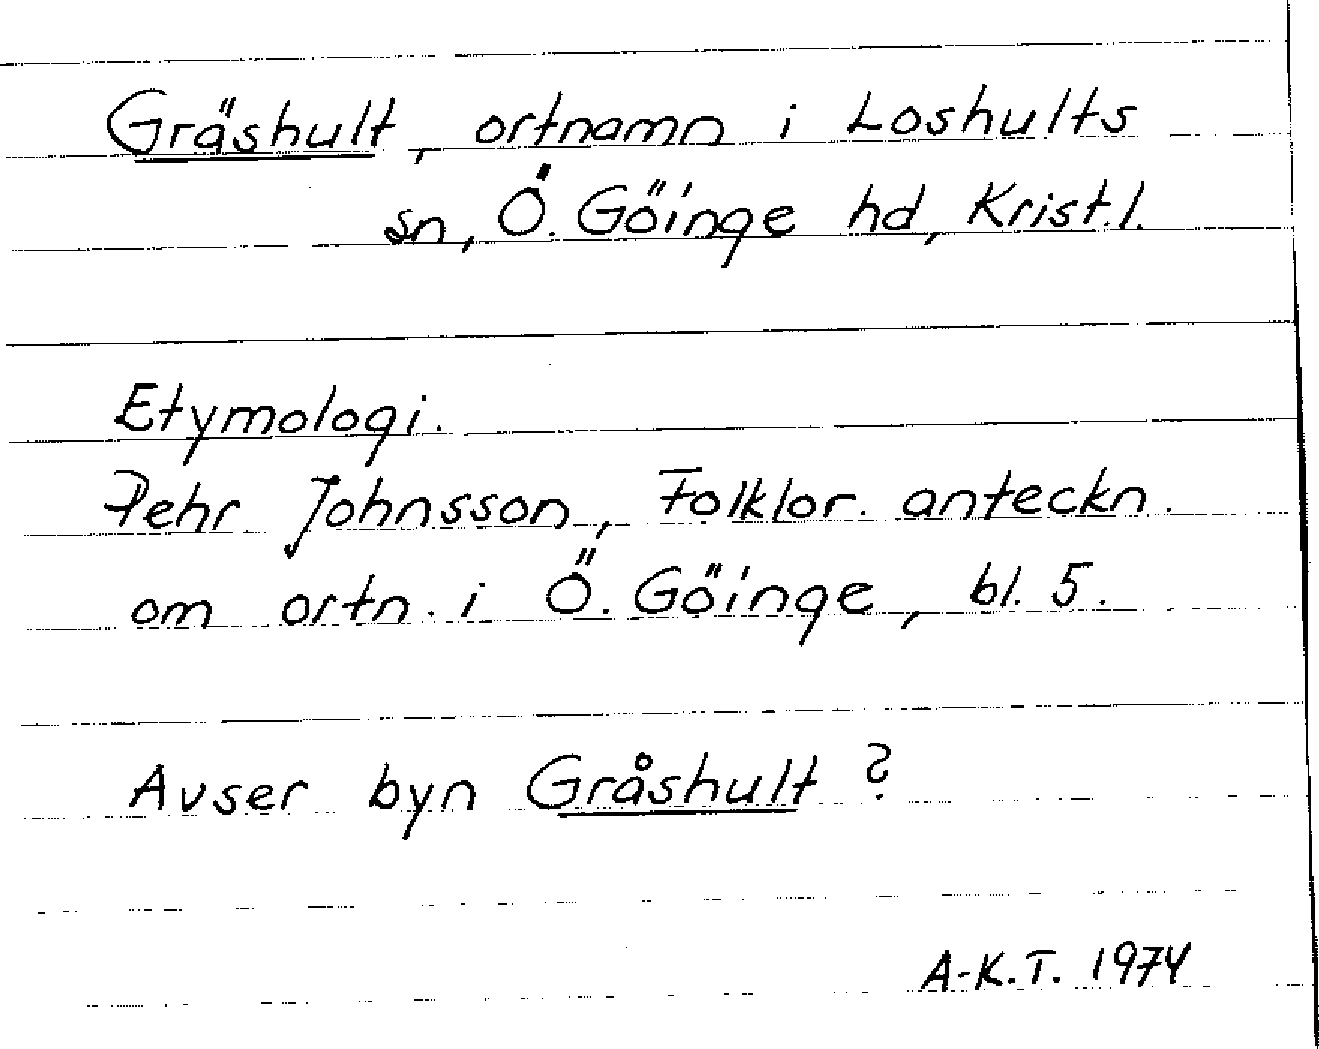 Gräshult, ortnamn i Loshults
sn, Ö. Göinge hd, Krist.l.
Etymologi.
Pehr Johnsson, Folklor. anteckn.
om ortn. i Ö. Göinge, bl. 5.
Avser byn Gråshult?
A-K.T. 1974